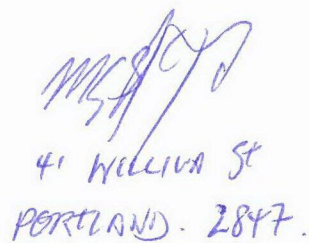 41 WILLIWA St
PORTLAND. 2847.